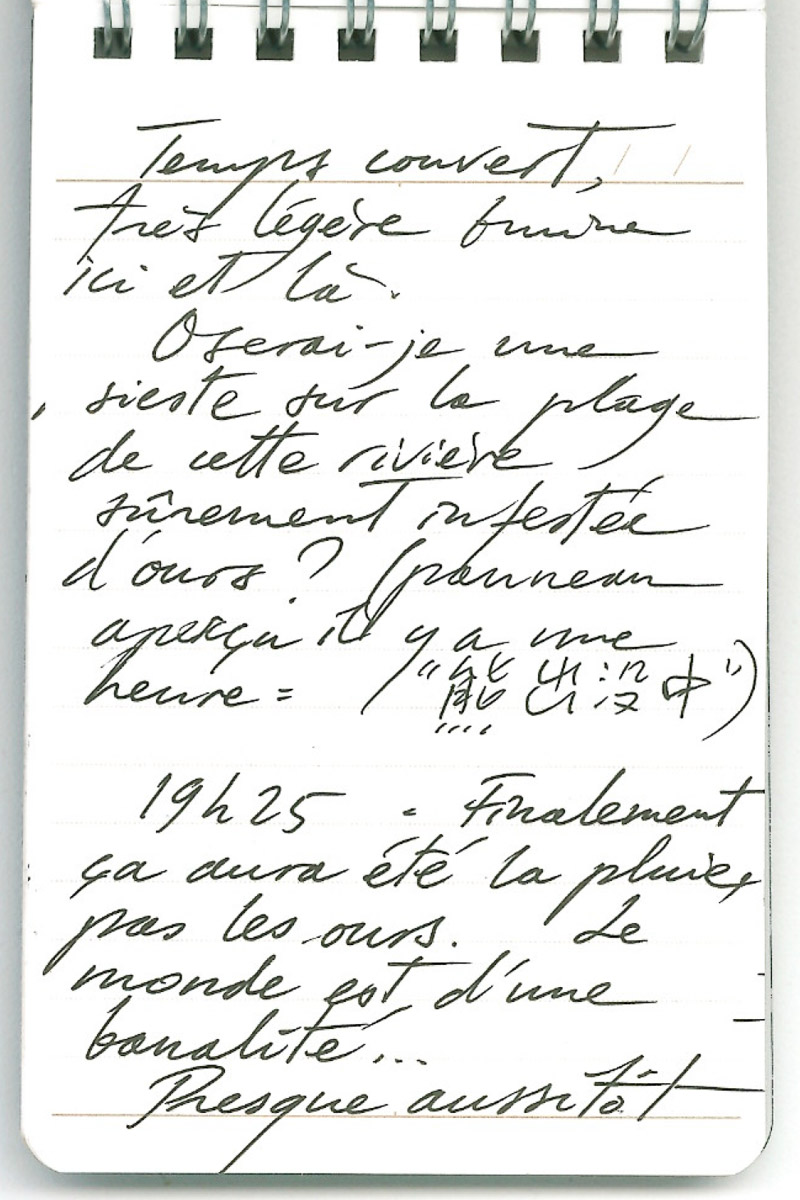 Temps couvert,
très légère bruine
ici et là.
Oserai-je une
sieste sur la plage
de cette rivière
sûrement infestée
d'ours ? (panneau
aperçu il y a une
heure = "熊出没中")
19h25 - Finalement
ça aura été la pluie,
pas les ours. Le
monde est d'une
banalité...
Presque aussitôt